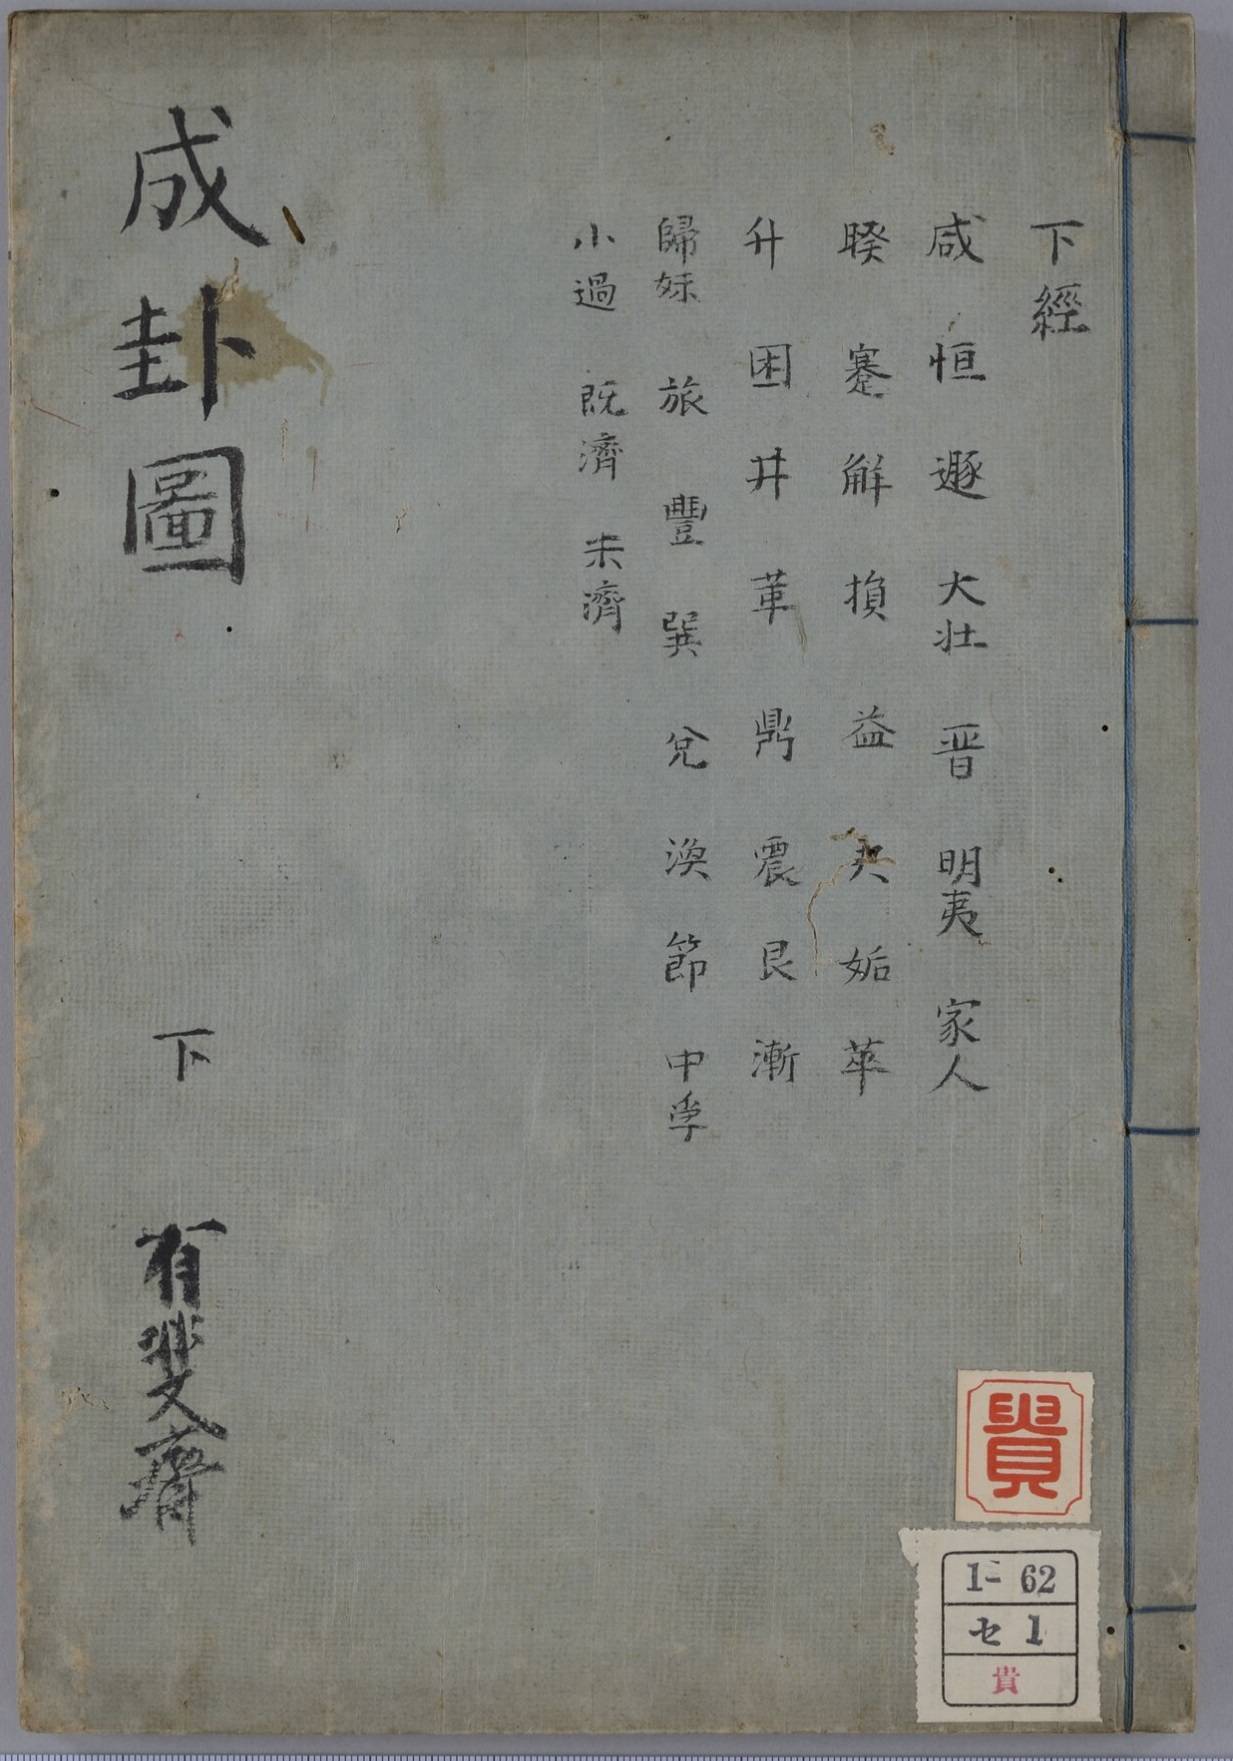 下經
咸 恒 遯 大壯 晋 明夷 家人
睽 蹇 解 損 益 夬 姤 萃
升 困 井 革 鼎 震 艮 漸
歸妹 旅 豐 巽 兌 渙 節 中孚
小過 既濟 未濟
成卦圖 下 有斐齋
貴
1-62
セ1
貴